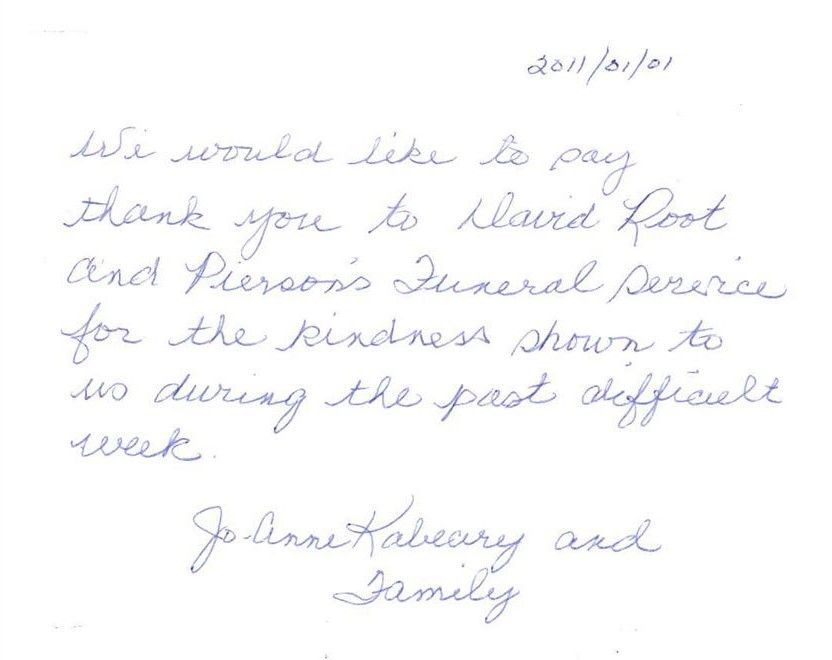 2011/01/01
We would like to pay
thank you to David Root
and Pierson's Funeral Service
for the kindness shown to
us during the past difficult
week.
Jo-Anne Kabeary and
Family